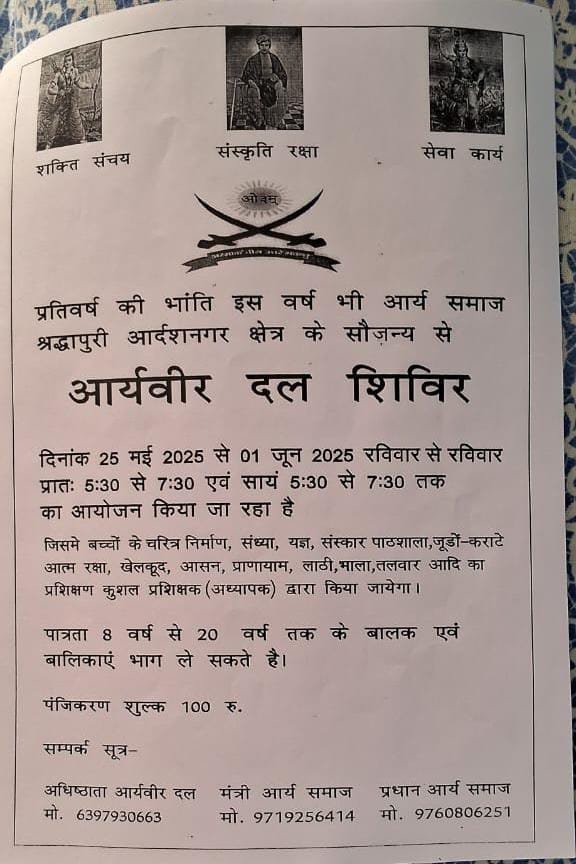 शक्ति संचय
संस्कृति रक्षा
सेवा कार्य
ओ३म्
प्रतिवर्ष की भांति इस वर्ष भी आर्य समाज
श्रद्धापुरी आर्दशनगर क्षेत्र के सौज़न्य से
आर्यवीर दल शिविर
दिनांक 25 मई 2025 से 01 जून 2025 रविवार से रविवार
प्रातः 5:30 से 7:30 एवं सायं 5:30 से 7:30 तक
का आयोजन किया जा रहा है
जिसमे बच्चों के चरित्र निर्माण, संध्या, यज्ञ, संस्कार पाठशाला,जूडों–कराटे
आत्म रक्षा, खेलकूद, आसन, प्राणायाम, लाठी,भाला,तलवार आदि का
प्रशिक्षण कुशल प्रशिक्षक (अध्यापक) द्वारा किया जायेगा।
पात्रता 8 वर्ष से 20 वर्ष तक के बालक एवं
बालिकाएं भाग ले सकते है।
पंजिकरण शुल्क 100 रु.
सम्पर्क सूत्र–
अधिष्ठाता आर्यवीर दल मंत्री आर्य समाज प्रधान आर्य समाज
मो. 6397930663 मो. 9719256414 मो. 9760806251